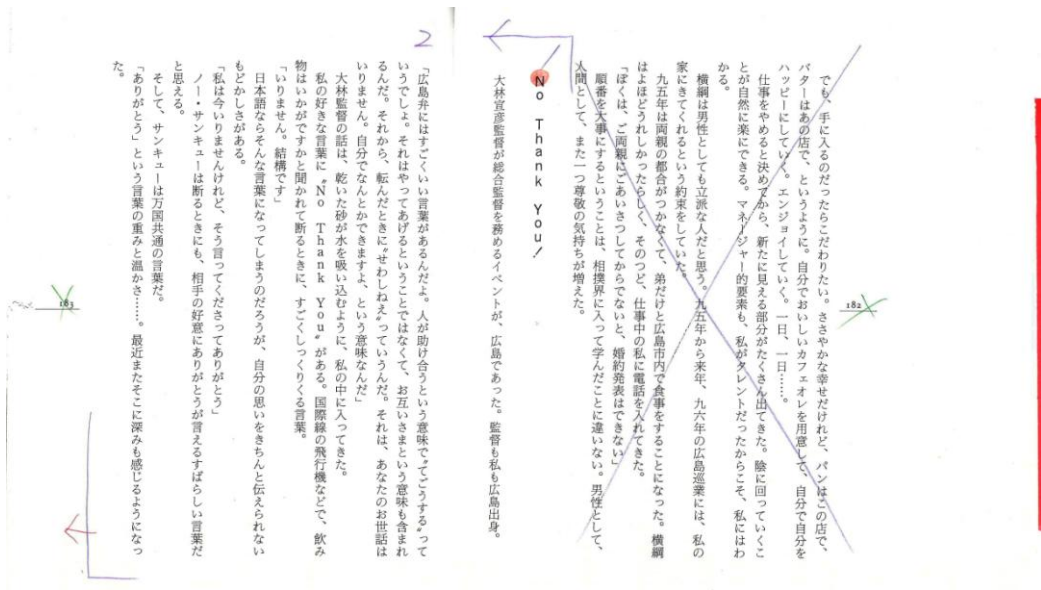 でも、手に入るのだったらこだわりたい。ささやかな幸せだけれど、パンはこの店で、
バターはあの店で、というように。自分でおいしいカフェオレを用意して、自分で自分を
ハッピーにしていく。エンジョイしていく。一日、一日……。
仕事をやめると決めてから、新たに見える部分がたくさん出てきた。陰に回っていくこ
とが自然に楽にできる。マネージャー的要素も、私がタレントだったからこそ、私にはわ
かる。
横綱は男性としても立派な人だと思う。九五年から来年、九六年の広島巡業には、私の
家にきてくれるという約束をしていた。
九五年は両親の都合がつかなくて、弟だけと広島市内で食事をすることになった。横綱
はよほどうれしかったらしく、そのつど、仕事中の私に電話を入れてきた。
「ぼくは、ご両親にごあいさつしてからでないと、婚約発表はできない」
順番を大事にするということは、相撲界に入って学んだことに違いない。男性として、
人間として、また一つ尊敬の気持ちが増えた。
No Thank You!
大林宣彦監督が総合監督を務めるイベントが、広島であった。監督も私も広島出身。
182
2
「広島弁にはすごくいい言葉があるんだよ。人が助け合うという意味で〝てごうする〟って
いうでしょ。それはやってあげるということではなくて、お互いさまという意味も含まれ
るんだ。それから、転んだときに〝せわしねえ〟っていうんだ。それは、あなたのお世話は
いりません。自分でなんとかできますよ、という意味なんだ」
大林監督の話は、乾いた砂が水を吸い込むように、私の中に入ってきた。
私の好きな言葉に〝No Thank You〟がある。国際線の飛行機などで、飲み
物はいかがですかと聞かれて断るときに、すごくしっくりくる言葉。
「いりません。結構です」
日本語ならそんな言葉になってしまうのだろうが、自分の思いをきちんと伝えられない
もどかしさがある。
「私は今いりませんけれど、そう言ってくださってありがとう」
ノー・サンキューは断るときにも、相手の好意にありがとうが言えるすばらしい言葉だ
と思える。
そして、サンキューは万国共通の言葉だ。
「ありがとう」という言葉の重みと温かさ……。最近またそこに深みも感じるようになっ
た。
183